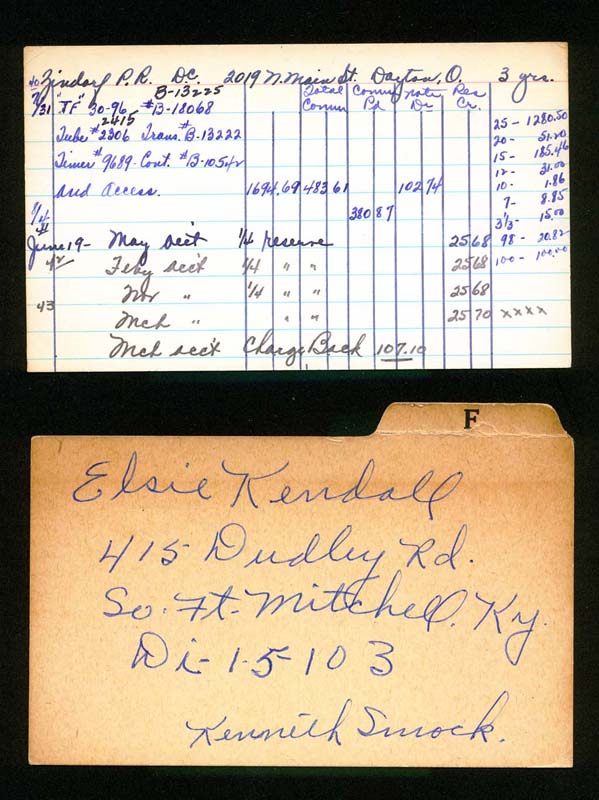 40 Zindorf P.R. D.C. 2019 N. Main St. Dayton, O. 3 yrs.
B-13225
7/31 "TF" 30-96 #B-18068
Total Comm Comm Pd Notes Dr Res Cr.
2415
Tube #2306 Trans. #B-13222
Timer #9689-Cont. #B-10542
and access. 1694.69 483 61 102 74
1/4 380 87
41
June 19- May acc't 1/4 reserve 25 68
42 Feby acc't 1/4 " " 25 68
Nov " 1/4 " " 25 68
43
Mch " " " 25 70 xxxx
Mch acc't Charge Back 107.10
25 - 1280.50
20- 51.20
15 - 185.46
12 - 31.00
10- 1.86
7- 8.85
3 1/3- 15.00
98 - 20.82
100 - 100.00
F
Elsie Kendall
415 Dudley Rd.
So. Ft. Mitchell. Ky.
Di-1-5-103
Kenneth Smock.